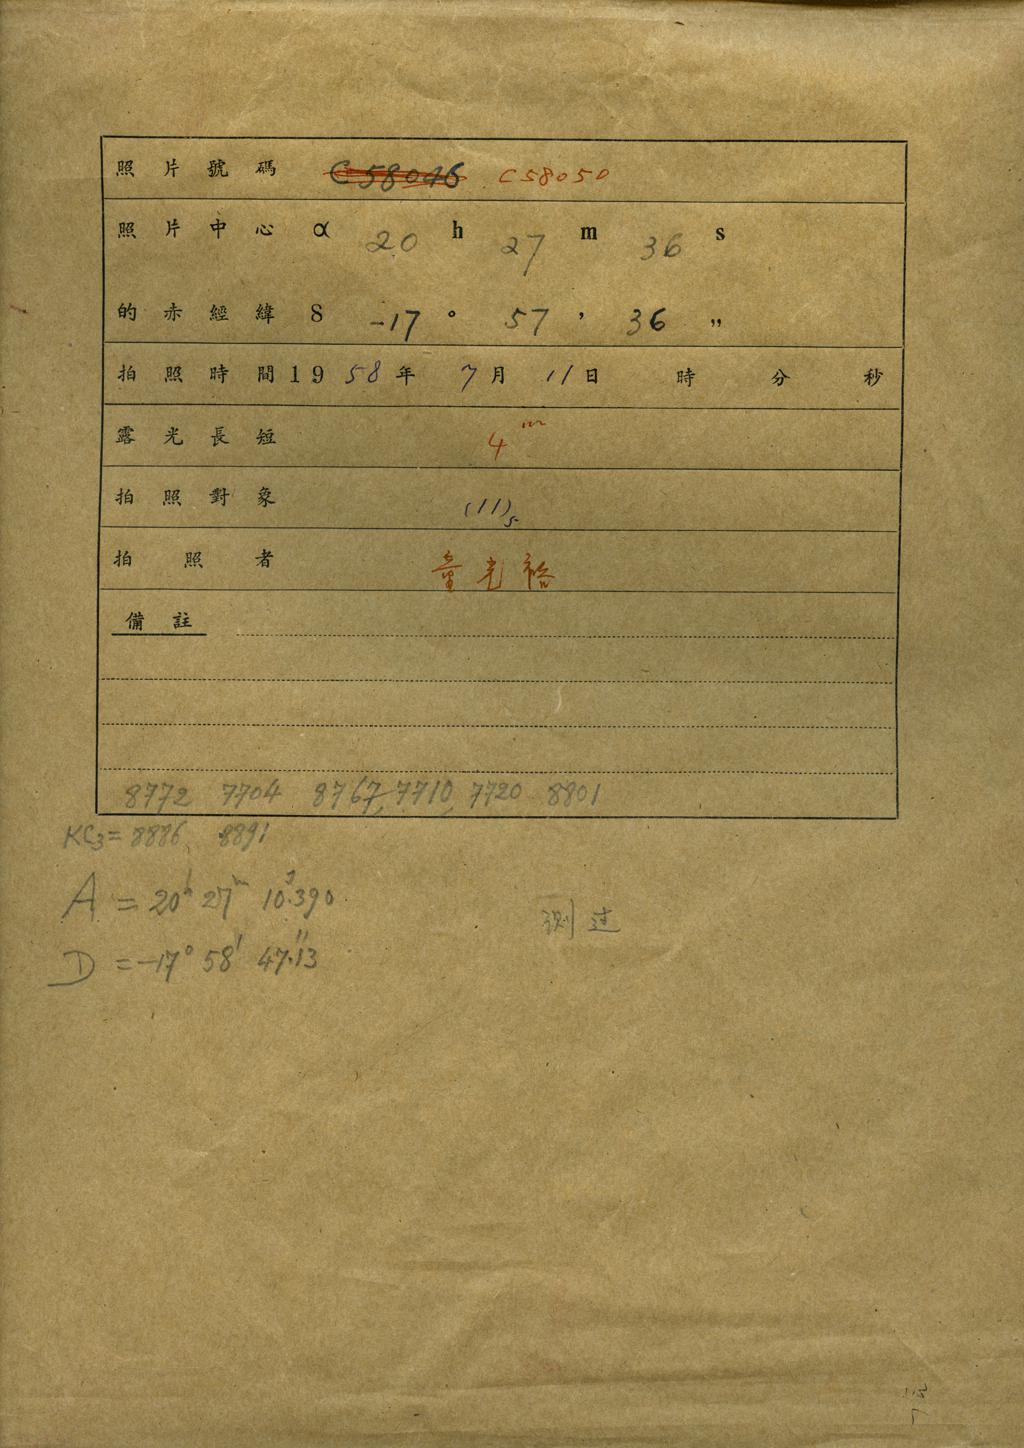 照片號碼 C58046 C58050
照片中心 α 20 h 27 m 36 s
的赤經緯 δ -17 ° 57 ' 36 "
拍照時間 1958年 7月 11日 時 分 秒
露光長短 4m
拍照對象 (11)s
拍照者 童光裕
備註
8772 7704 8767, 7710, 7720 8801
KC3= 8886, 8891
A = 20h 27m 10s.390
D = -17° 58' 47".13
测过